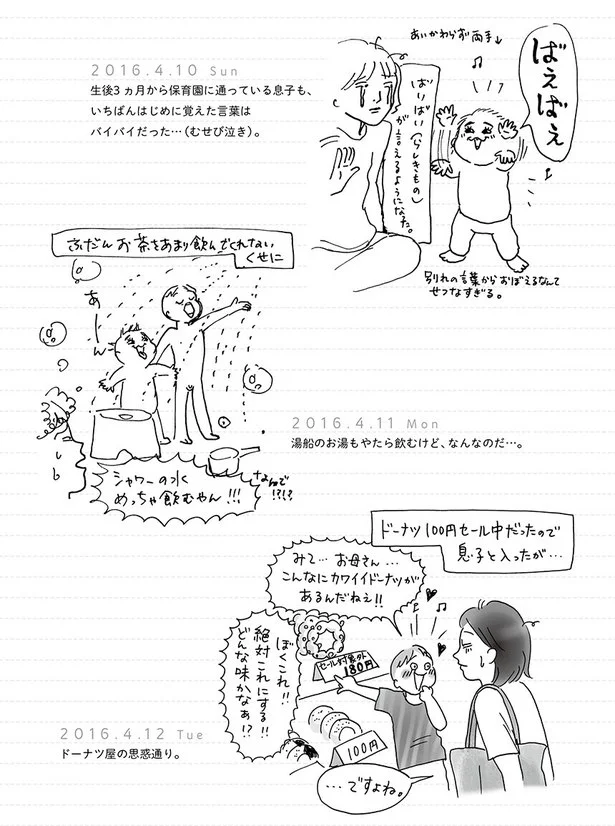 2016.4.10 Sun
生後3ヵ月から保育園に通っている息子も、
いちばんはじめに覚えた言葉は
バイバイだった…(むせび泣き)。
あいかわらず両手↓
ばえばえ
ばいばい(らしきもの)
が言えるようになった。
別れの言葉からおぼえるなんて
せつなすぎる。
ふだんお茶をあまり飲んでくれない
くせに
あーん
シャワーの水
めっちゃ飲むやん!!!
なんで
!?!?
2016.4.11 Mon
湯船のお湯もやたら飲むけど、なんなのだ…。
ドーナツ100円セール中だったので
息子と入ったが…
みて…お母さん…
こんなにカワイイドーナツが
あるんだねえ!!
ぼくこれ!!
絶対これにする!!
どんな味かなぁ!?
セール対象外
180円
100円
…ですよね。
2016.4.12 Tue
ドーナツ屋の思惑通り。